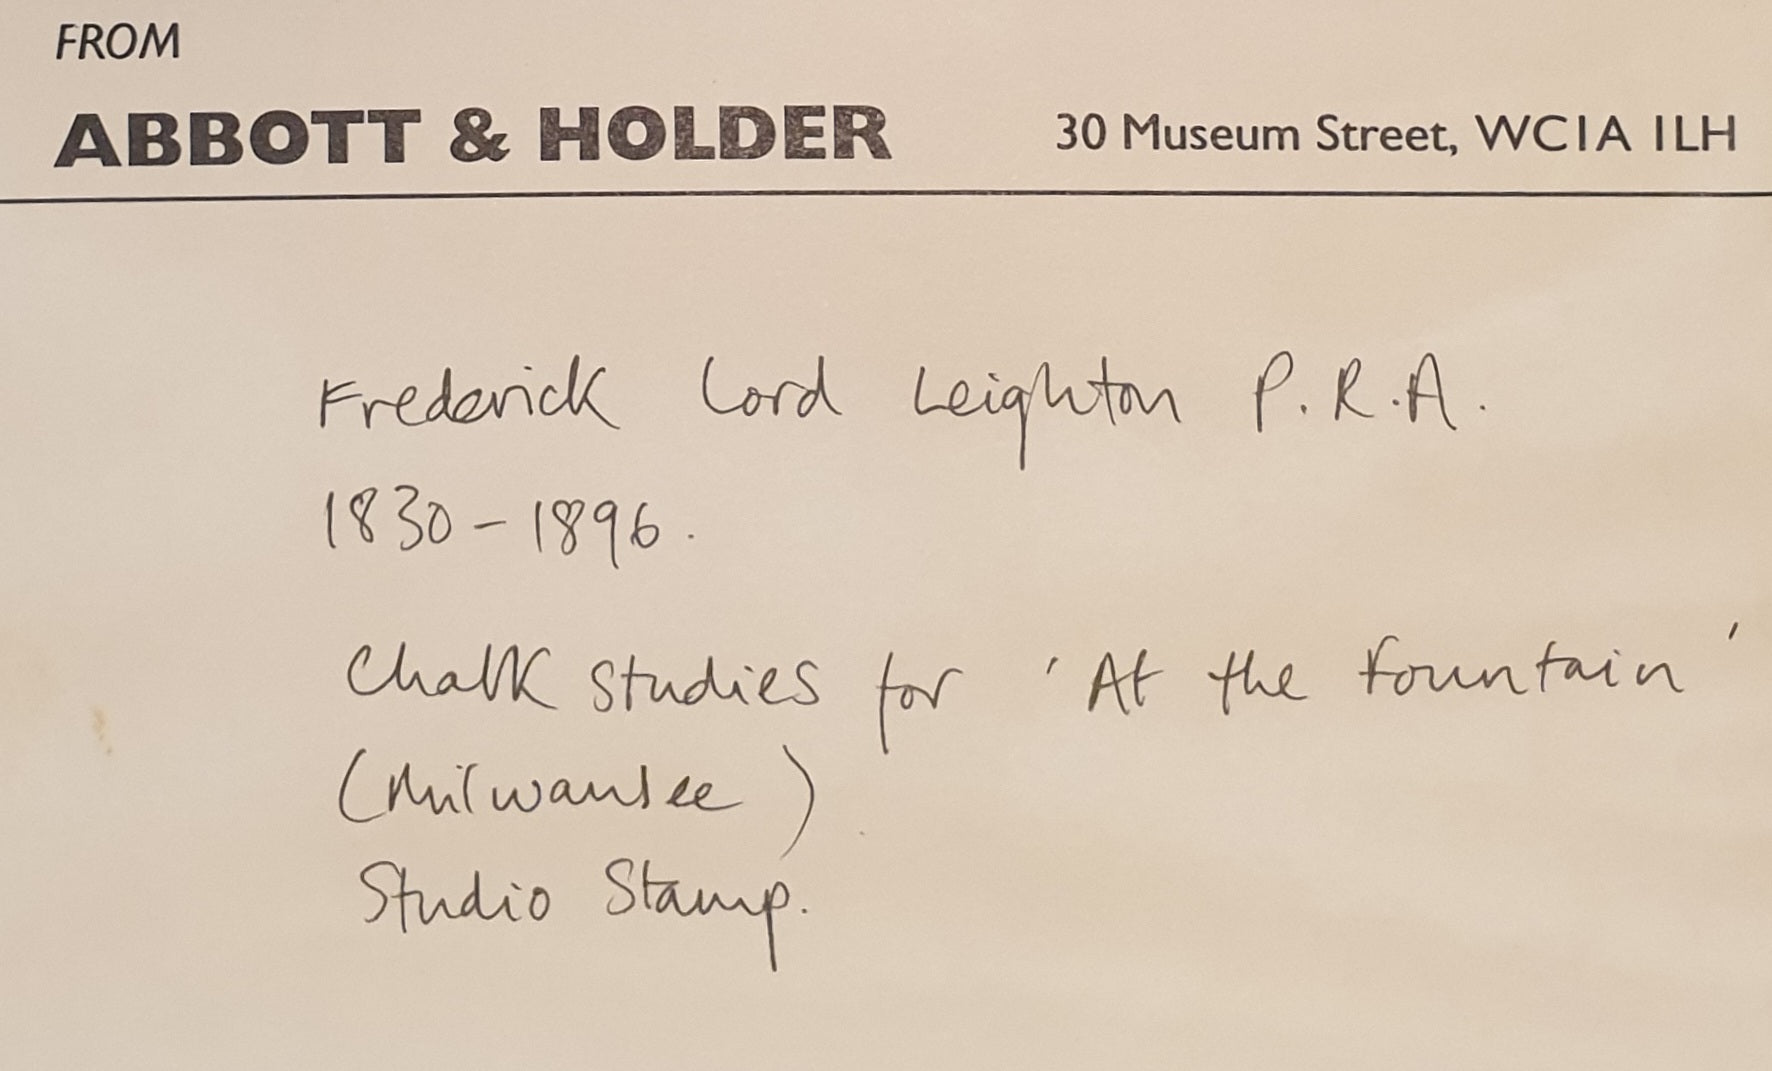 FROM
ABBOTT & HOLDER 30 Museum Street, WC1A 1LH
Frederick Lord Leighton P.R.A.
1830-1896.
Chalk studies for 'At the Fountain'
(Milwaukee)
Studio Stamp.